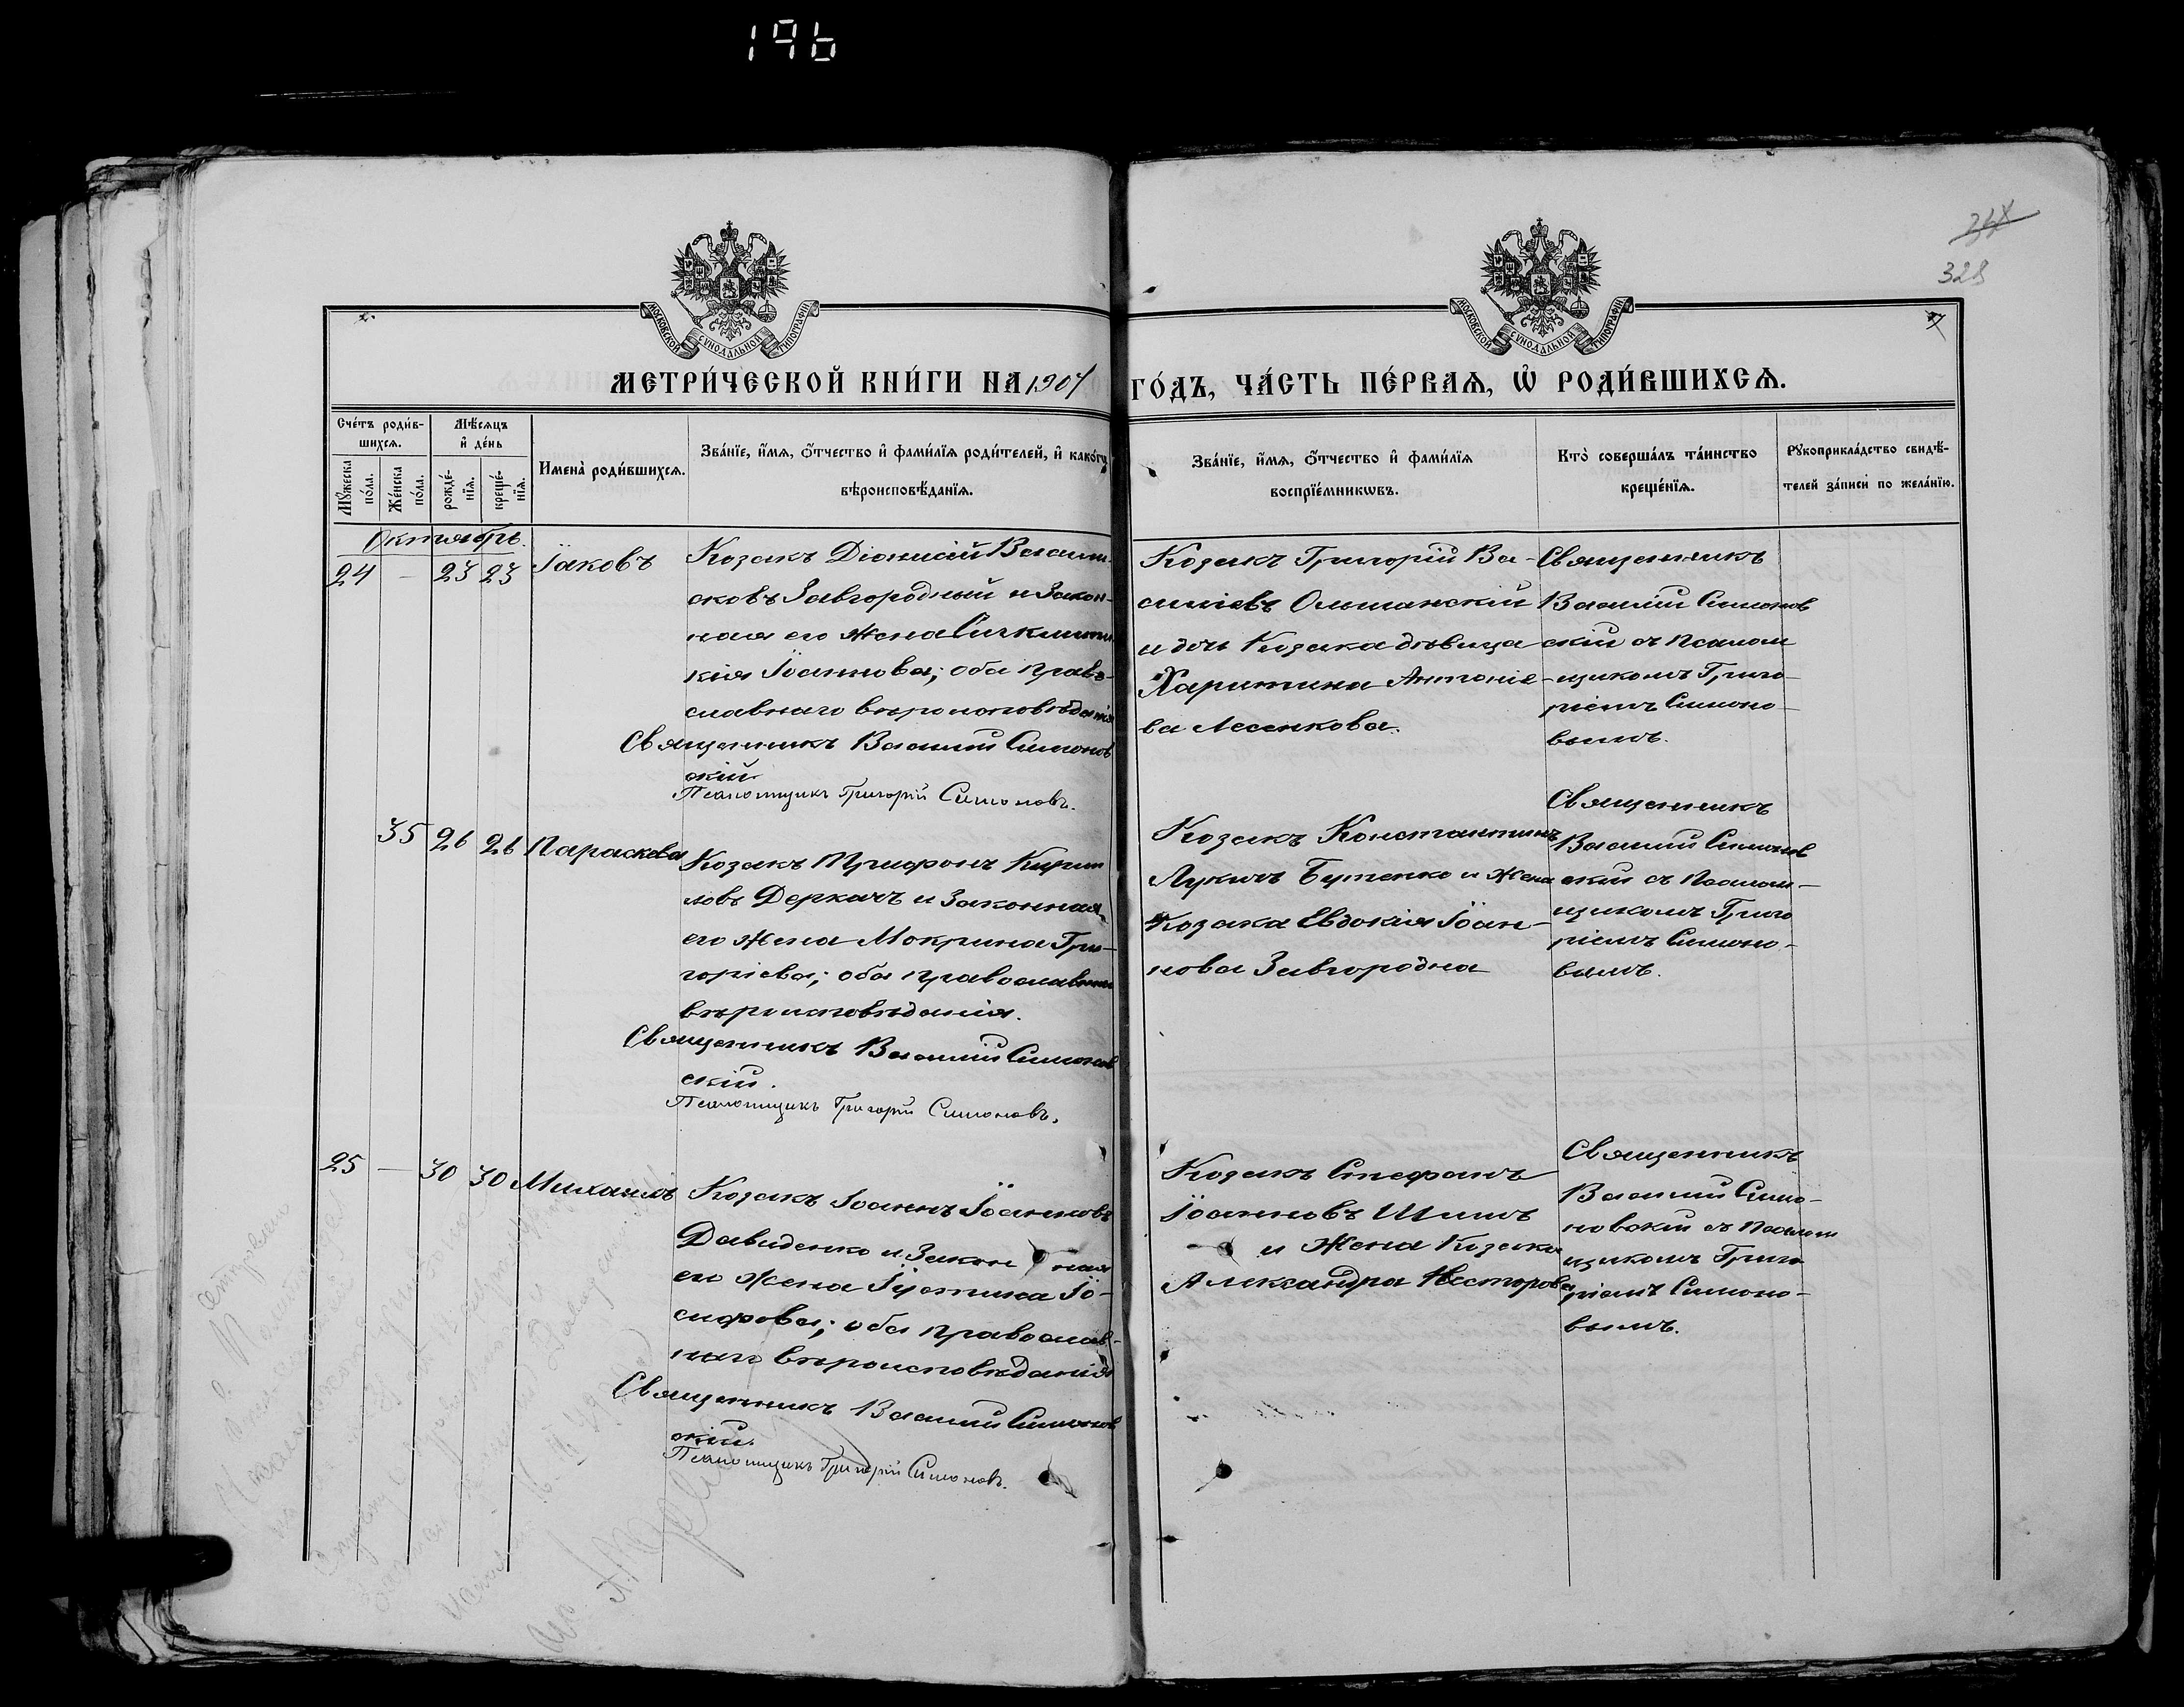 196
МОСКОВСКОЙ СѴНОДАЛЬНОЙ ТИПОГРАФІИ
МОСКОВСКОЙ СѴНОДАЛЬНОЙ ТИПОГРАФІИ
328
МЕТРИ́ЧЕСКОЙ КНИ́ГИ НА 1904 ГО́ДЪ, ЧА́СТЬ ПЕ́РВАѦ, Ѽ РОДИ́ВШИХСѦ.
Сче́тъ роди́в-
шихсѧ.
Мꙋ́жеска по́ла.
Же́нска по́ла.
Мѣ́сѧцъ
и҆ де́нь
рожде́-
нїѧ.
креще́-
нїѧ.
Имена̀ роди́вшихсѧ.
Зва́нїе, и҆́мѧ, ѻ҆́тчество и҆ фами́лїѧ роди́телей, и҆ како́гѡ
вѣроисповѣ́данїѧ.
Зва́нїе, и҆́мѧ, ѻ҆́тчество и҆ фами́лїѧ
воспрїе́мникѡвъ.
Кто̀ соверша́лъ та́инство
креще́нїѧ.
Рꙋкоприкла́дство свидѣ́-
телей за́писи по жела́нїю.
Октябрь.
24 — 23 23 Іаковъ
Козакъ Діонисій Васили-
сковъ Завгородный и Закон-
ная его жена
кія Іоаннова; оба право-
славнаго вѣроисповѣданія
Священникъ Василій Симонов
скій.
Псаломщикъ Григорій Симоновъ.
Козакъ Григорій Ва-
силіевъ Ольшанскій
и дочь Козака дѣвица
Харитина Антоніе-
ва Лесенкова.
Священникъ
Василій Симонов
скій съ Псалом
щикомъ Григо-
ріемъ Симоно-
вымъ.
35 26 26 Параскева
Козакъ Трифонъ Кирил
ловъ Деркачъ и Законная
его жена Мокрина Гри-
горіева; оба православнаго
вѣроисповѣданія.
Священникъ Василій Симонов
скій.
Псаломщикъ Григорій Симоновъ.
Козакъ Константинъ
Лукичъ Бутенко и жена
Козака Евдокія Іоан-
нова Завгородна
Священникъ
Василій Симонов
скій съ Псалом-
щикомъ Григо
ріемъ Симоно-
вымъ.
25 — 30 30 Михаилъ
Козакъ Іоаннъ Іоанновъ
Давиденко и Закон ная
его жена Іустина Іо-
сифова; оба православ-
наго вѣроисповѣданія
Священникъ Василій Симонов
скій.
Псаломщикъ Григорій Симоновъ.
Козакъ Стефанъ
Іоанновъ Шишъ
и Жена Козака
Александра Несторова
Священникъ
Василій Симо-
новскій съ Псалом
щикомъ Григо
ріемъ Симоно-
вымъ.